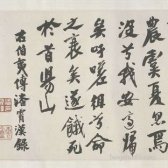 農虞夏忽焉
没兮我安適歸
矣吁嗟徂兮命
之衰矣遂餓死
於首陽山
右伯夷傳